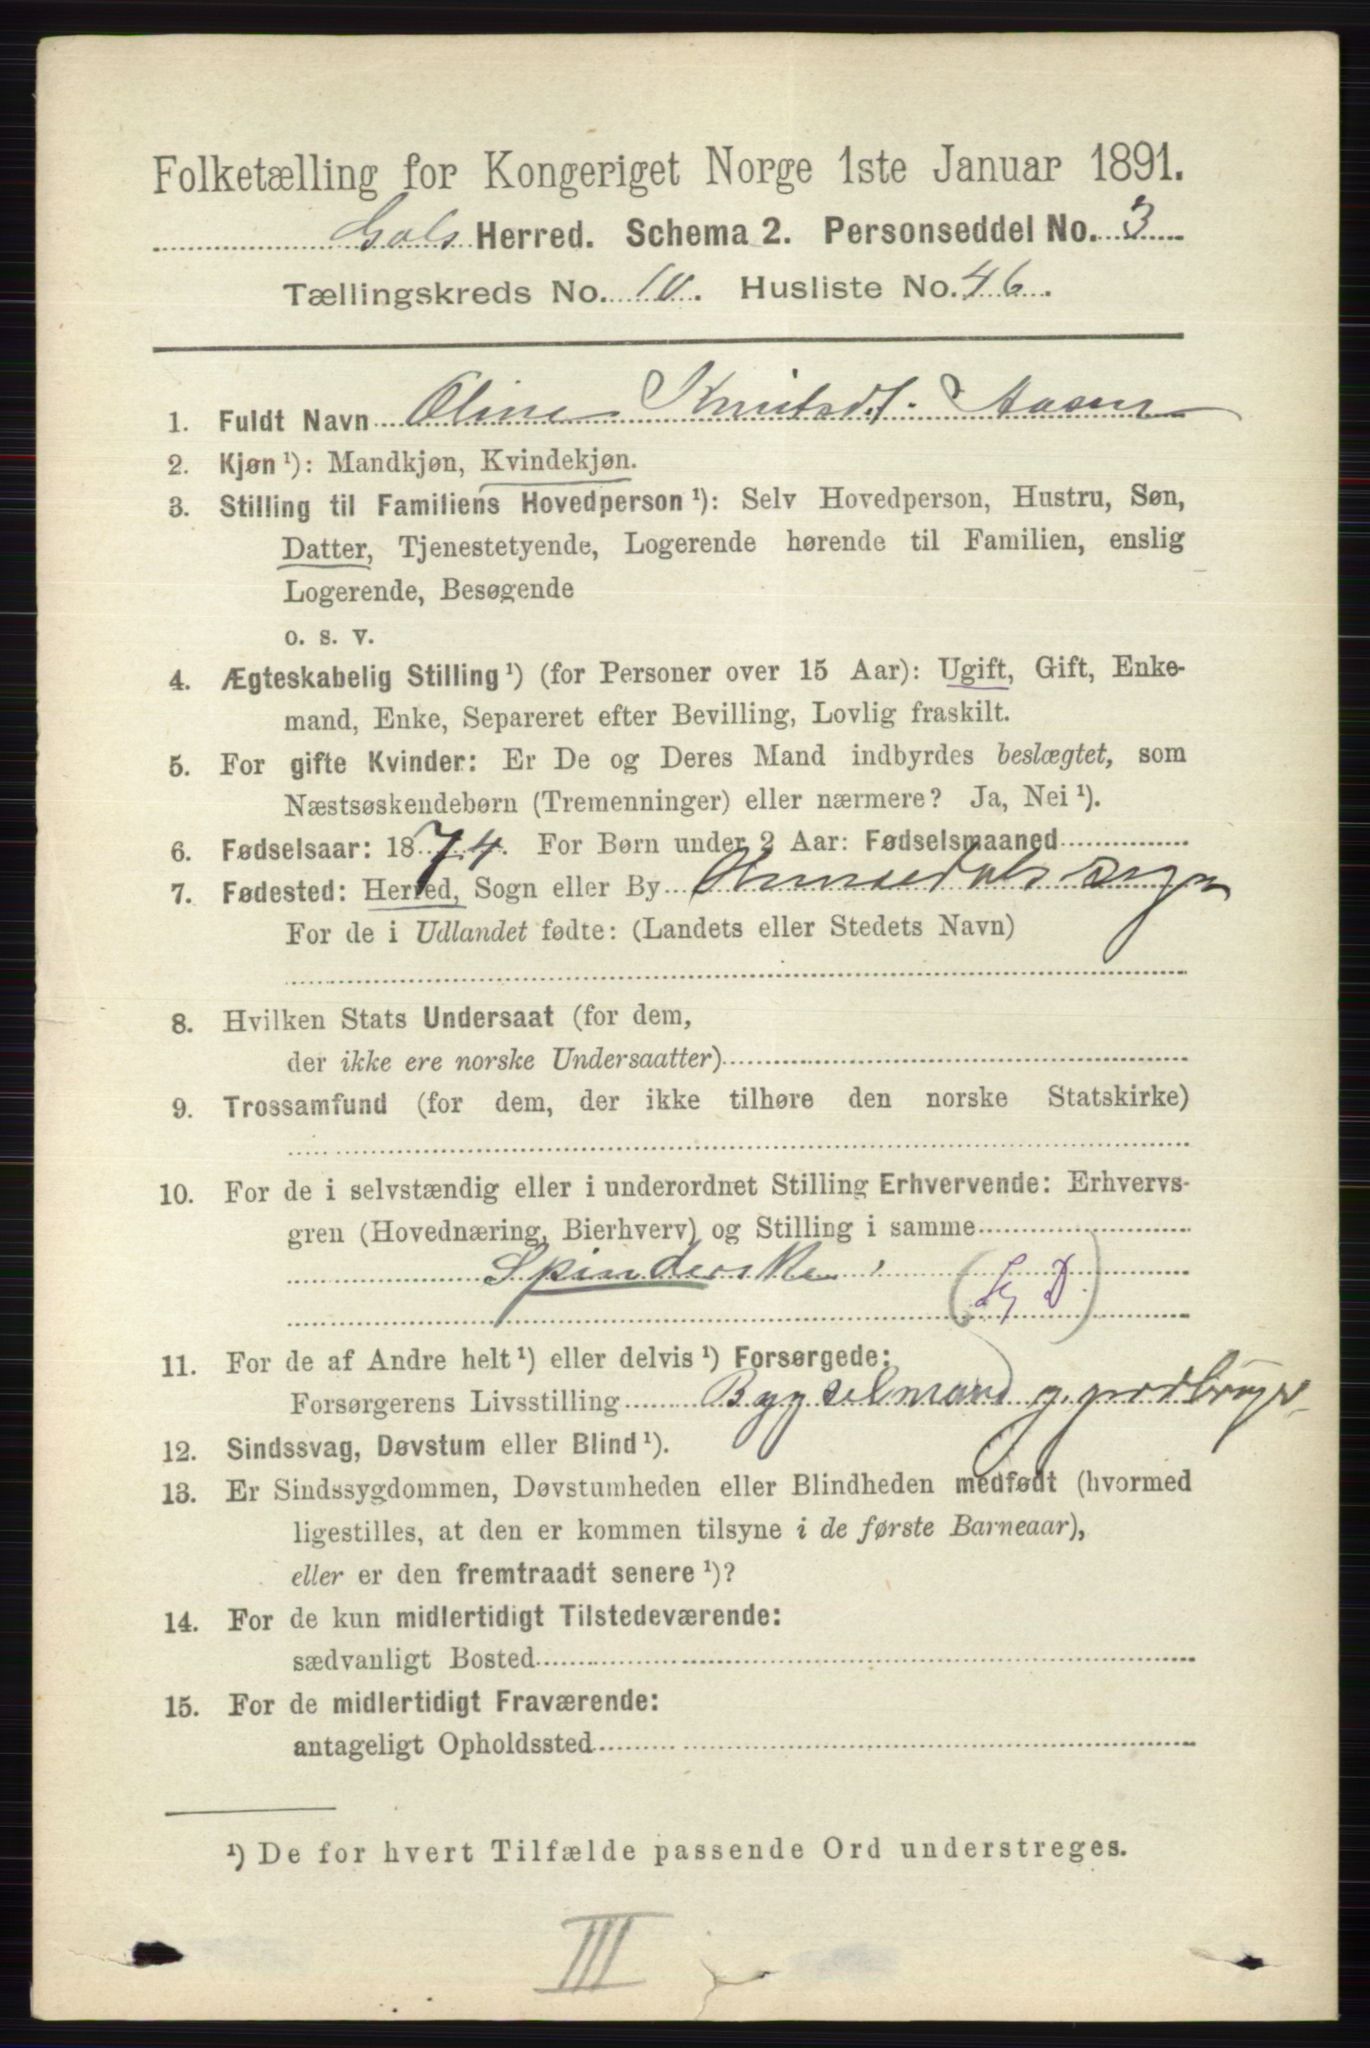 Folketælling for Kongeriget Norge 1ste Januar 1891.
Gols Herred. Schema 2. Personseddel No. 3
Tællingskreds No. 10. Husliste No. 46.
1. Fuldt Navn Oline Knutsdt. Aasen
2. Kjøn ¹): Mandkjøn, Kvindekjøn.
3. Stilling til Familiens Hovedperson ¹): Selv Hovedperson, Hustru, Søn,
Datter, Tjenestetyende, Logerende hørende til Familien, enslig
Logerende, Besøgende
o. s. v.
4. Ægteskabelig Stilling ¹) (for Personer over 15 Aar): Ugift, Gift, Enke-
mand, Enke, Separeret efter Bevilling, Lovlig fraskilt.
5. For gifte Kvinder: Er De og Deres Mand indbyrdes beslægtet, som
Næstsøskendebørn (Tremenninger) eller nærmere? Ja, Nei ¹).
6. Fødselsaar: 1874. For Børn under 2 Aar: Fødselsmaaned
7. Fødested: Herred, Sogn eller By Hemsedals sogn
For de i Udlandet fødte: (Landets eller Stedets Navn)
8. Hvilken Stats Undersaat (for dem,
der ikke ere norske Undersaatter)
9. Trossamfund (for dem, der ikke tilhøre den norske Statskirke)
10. For de i selvstændig eller i underordnet Stilling Erhvervende: Erhvervs-
gren (Hovednæring, Bierhverv) og Stilling i samme
Spinderske
11. For de af Andre helt ¹) eller delvis ¹) Forsørgede:
Forsørgerens Livsstilling Bygselmand g. jordbruger
12. Sindssvag, Døvstum eller Blind ¹).
13. Er Sindssygdommen, Døvstumheden eller Blindheden medfødt (hvormed
ligestilles, at den er kommen tilsyne i de første Barneaar),
eller er den fremtraadt senere ¹)?
14. For de kun midlertidigt Tilstedeværende:
sædvanligt Bosted
15. For de midlertidigt Fraværende:
antageligt Opholdssted
¹) De for hvert Tilfælde passende Ord understreges.
III